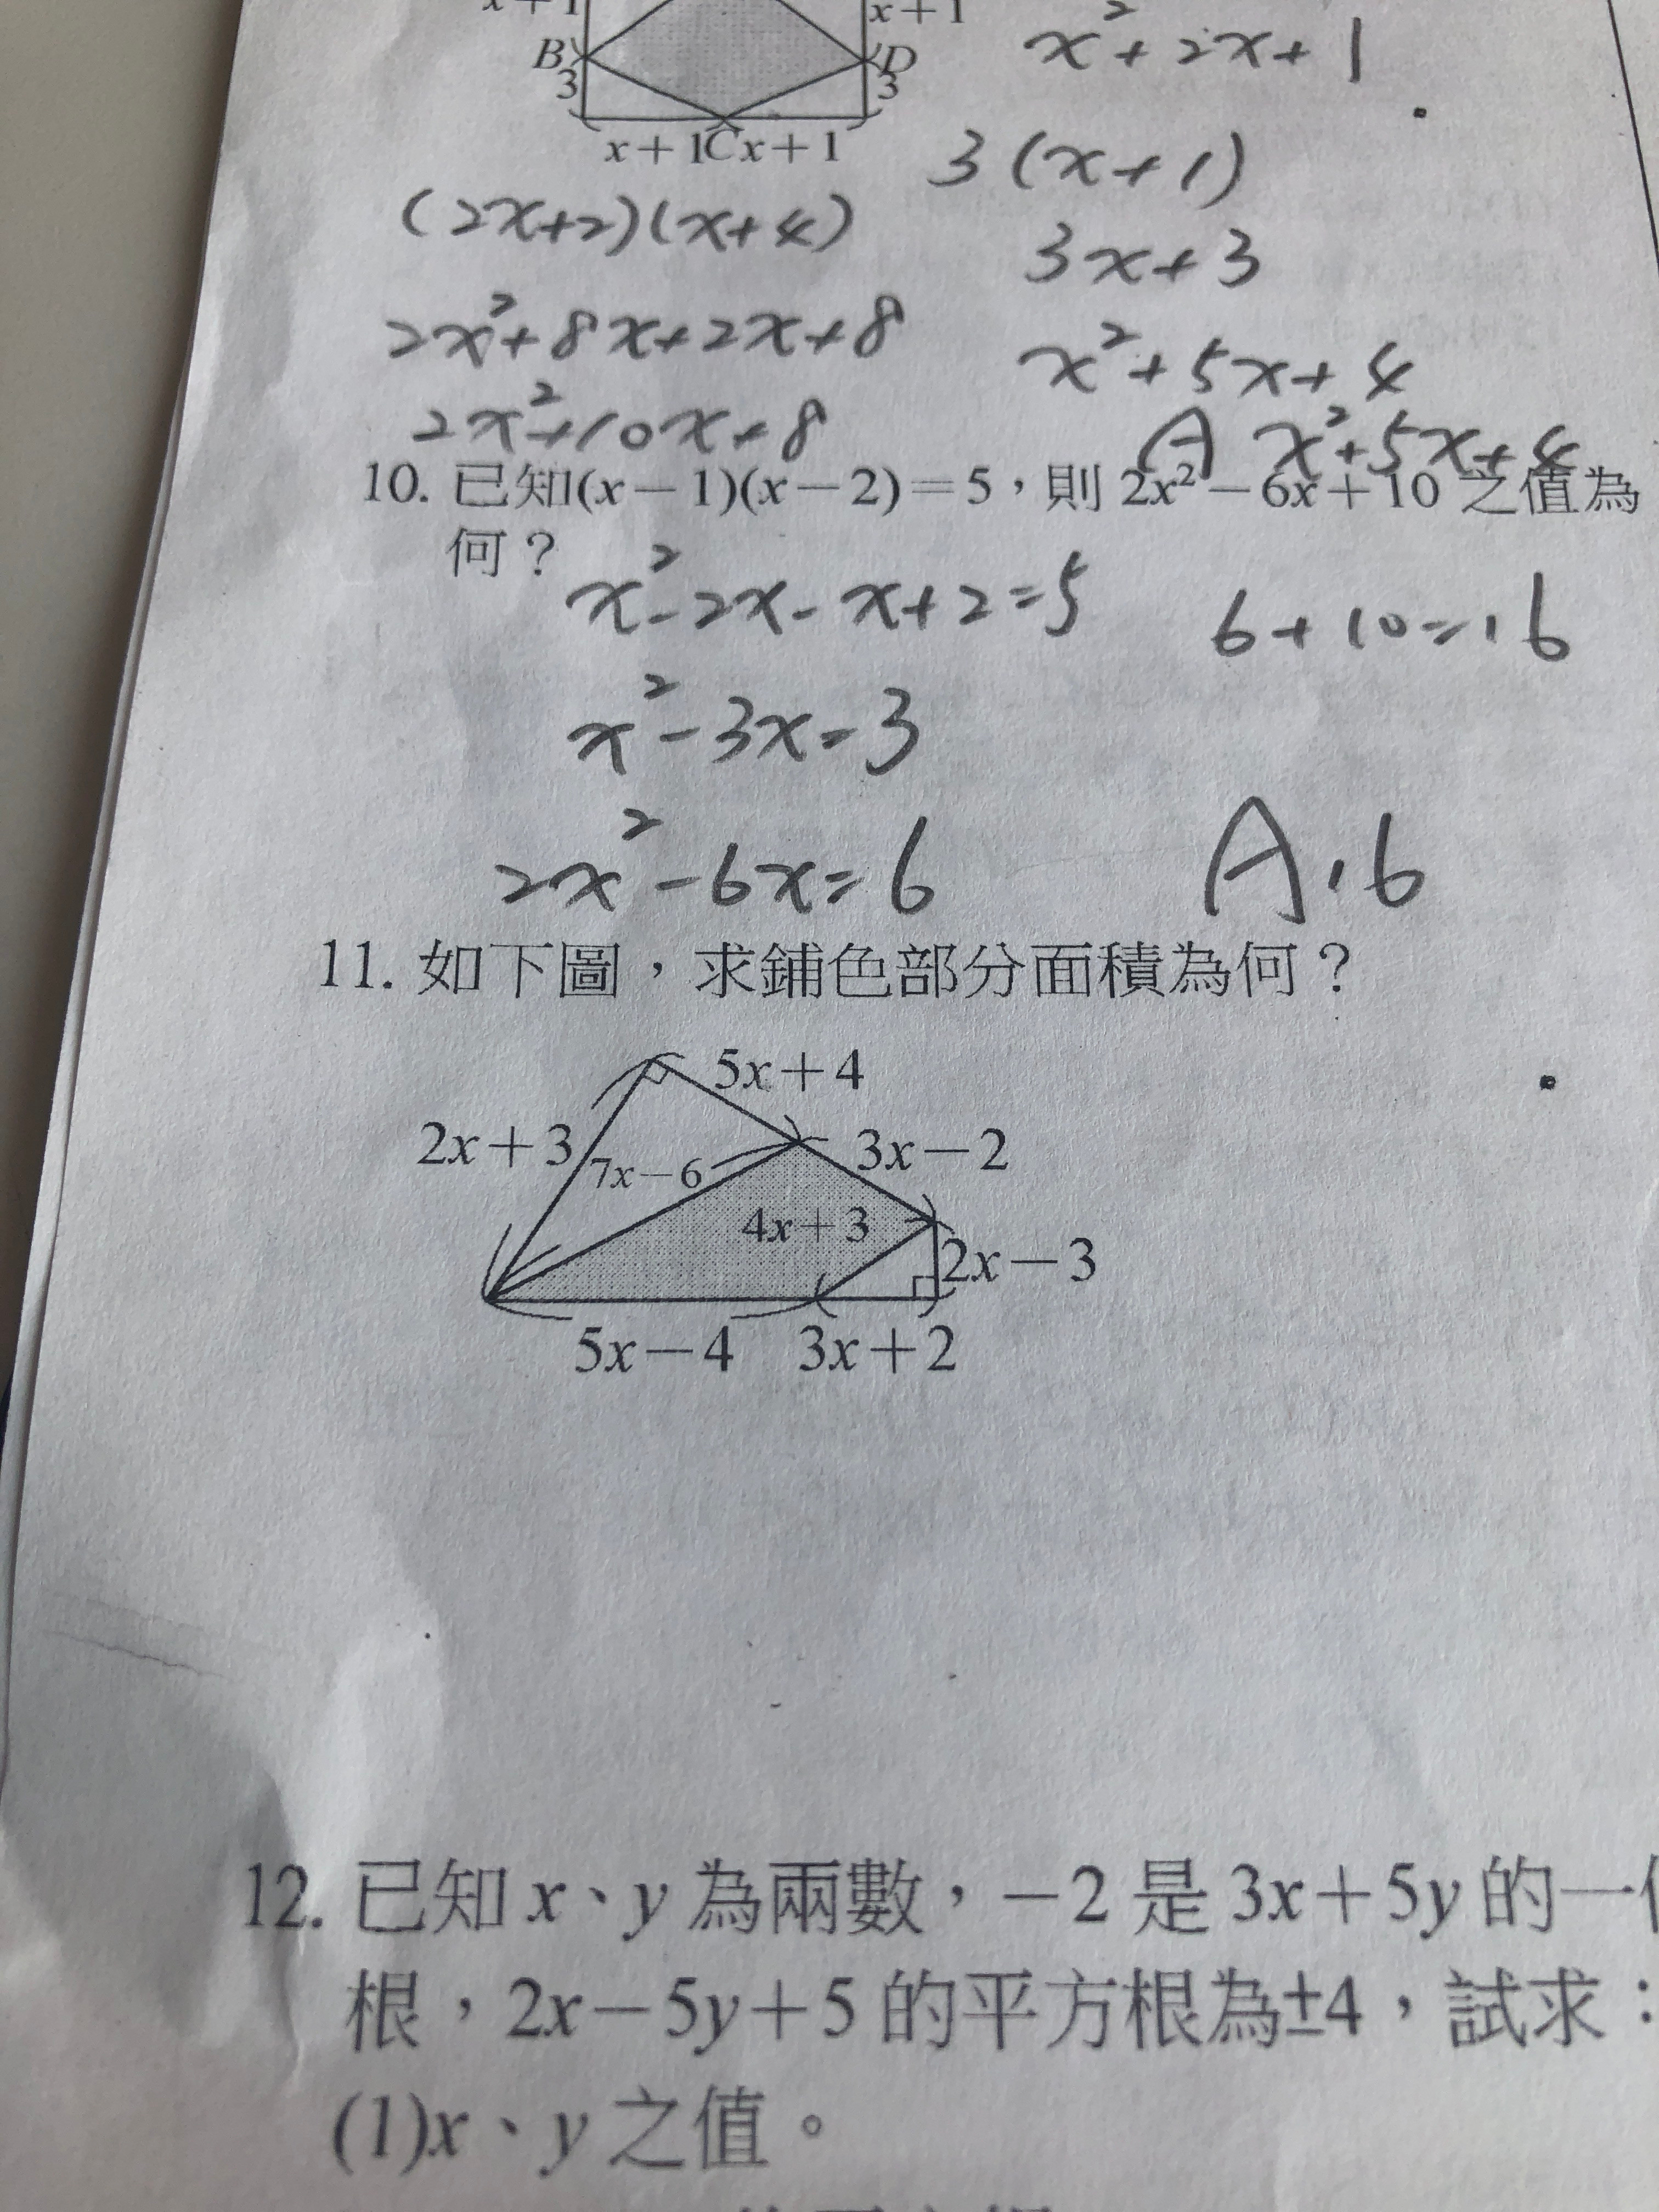 x+1
x+1
B
D
3
3
x+1Cx+1
x²+2x+1
3(x+1)
(2x+2)(x+4)
3x+3
2x²+8x+2x+8
x²+5x+4
2x²+10x+8
A x²+5x+4
10. 已知(x−1)(x−2)=5，則 2x²−6x+10 之值為
何？
x²-2x-x+2=5
6+10=16
x²-3x=3
2x²-6x=6
A16
11. 如下圖，求鋪色部分面積為何？
5x+4
2x+3
3x−2
7x−6
4x+3
2x−3
5x−4 3x+2
12. 已知 x、y 為兩數，−2 是 3x+5y 的一
根，2x−5y+5 的平方根為±4，試求：
(1)x、y 之值。